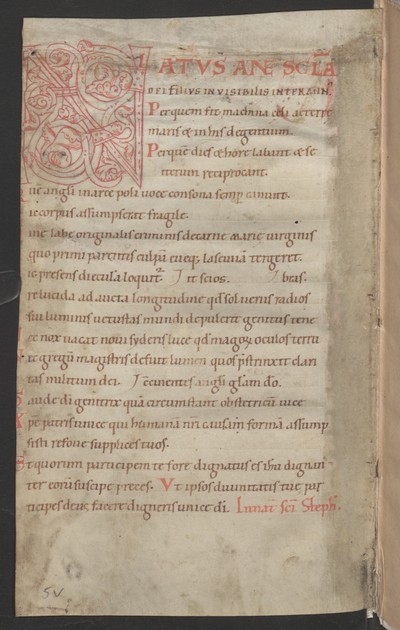 NATVS ANE SCLA
DEI FILIVS INVISIBILIS INTERMIN
Per quem fit machina celi ac terre
maris & in his degentium.
Per quē dies & hore labunt & se
iterum reciprocant.
ne angli in arce poli voce consona semp canunt.
ic corpus assumpserat fragile.
ine labe originalis criminis de carne marie virginis
quo primi parentis culpā euęq; lasciuiā tergeret.
ic presens diecula loquit. It scios. bras.
relucida ad aucta longitudine qd sol uerus radios
sui luminis uetustas mundi depulerit genitus tene
ec nox uacat noui syderis luce qd magoꝝ oculos terru
ec gregū magistris defuit lumen quos pstrinxit clari
tas militum dei. It cōcinentes angli glam do.
aude di genitrix quā circumstant obstetricū uice
pe patris unice qui humanā nri causam formā assump
sisti refoue supplices tuos.
t quorum participem te fore dignatus es ihu dignan
ter eorū suscipe preces. Vt ipsos diuinitatis tuę par
ticipes deus facere digneris unice di. In nat sci Steph.
SV